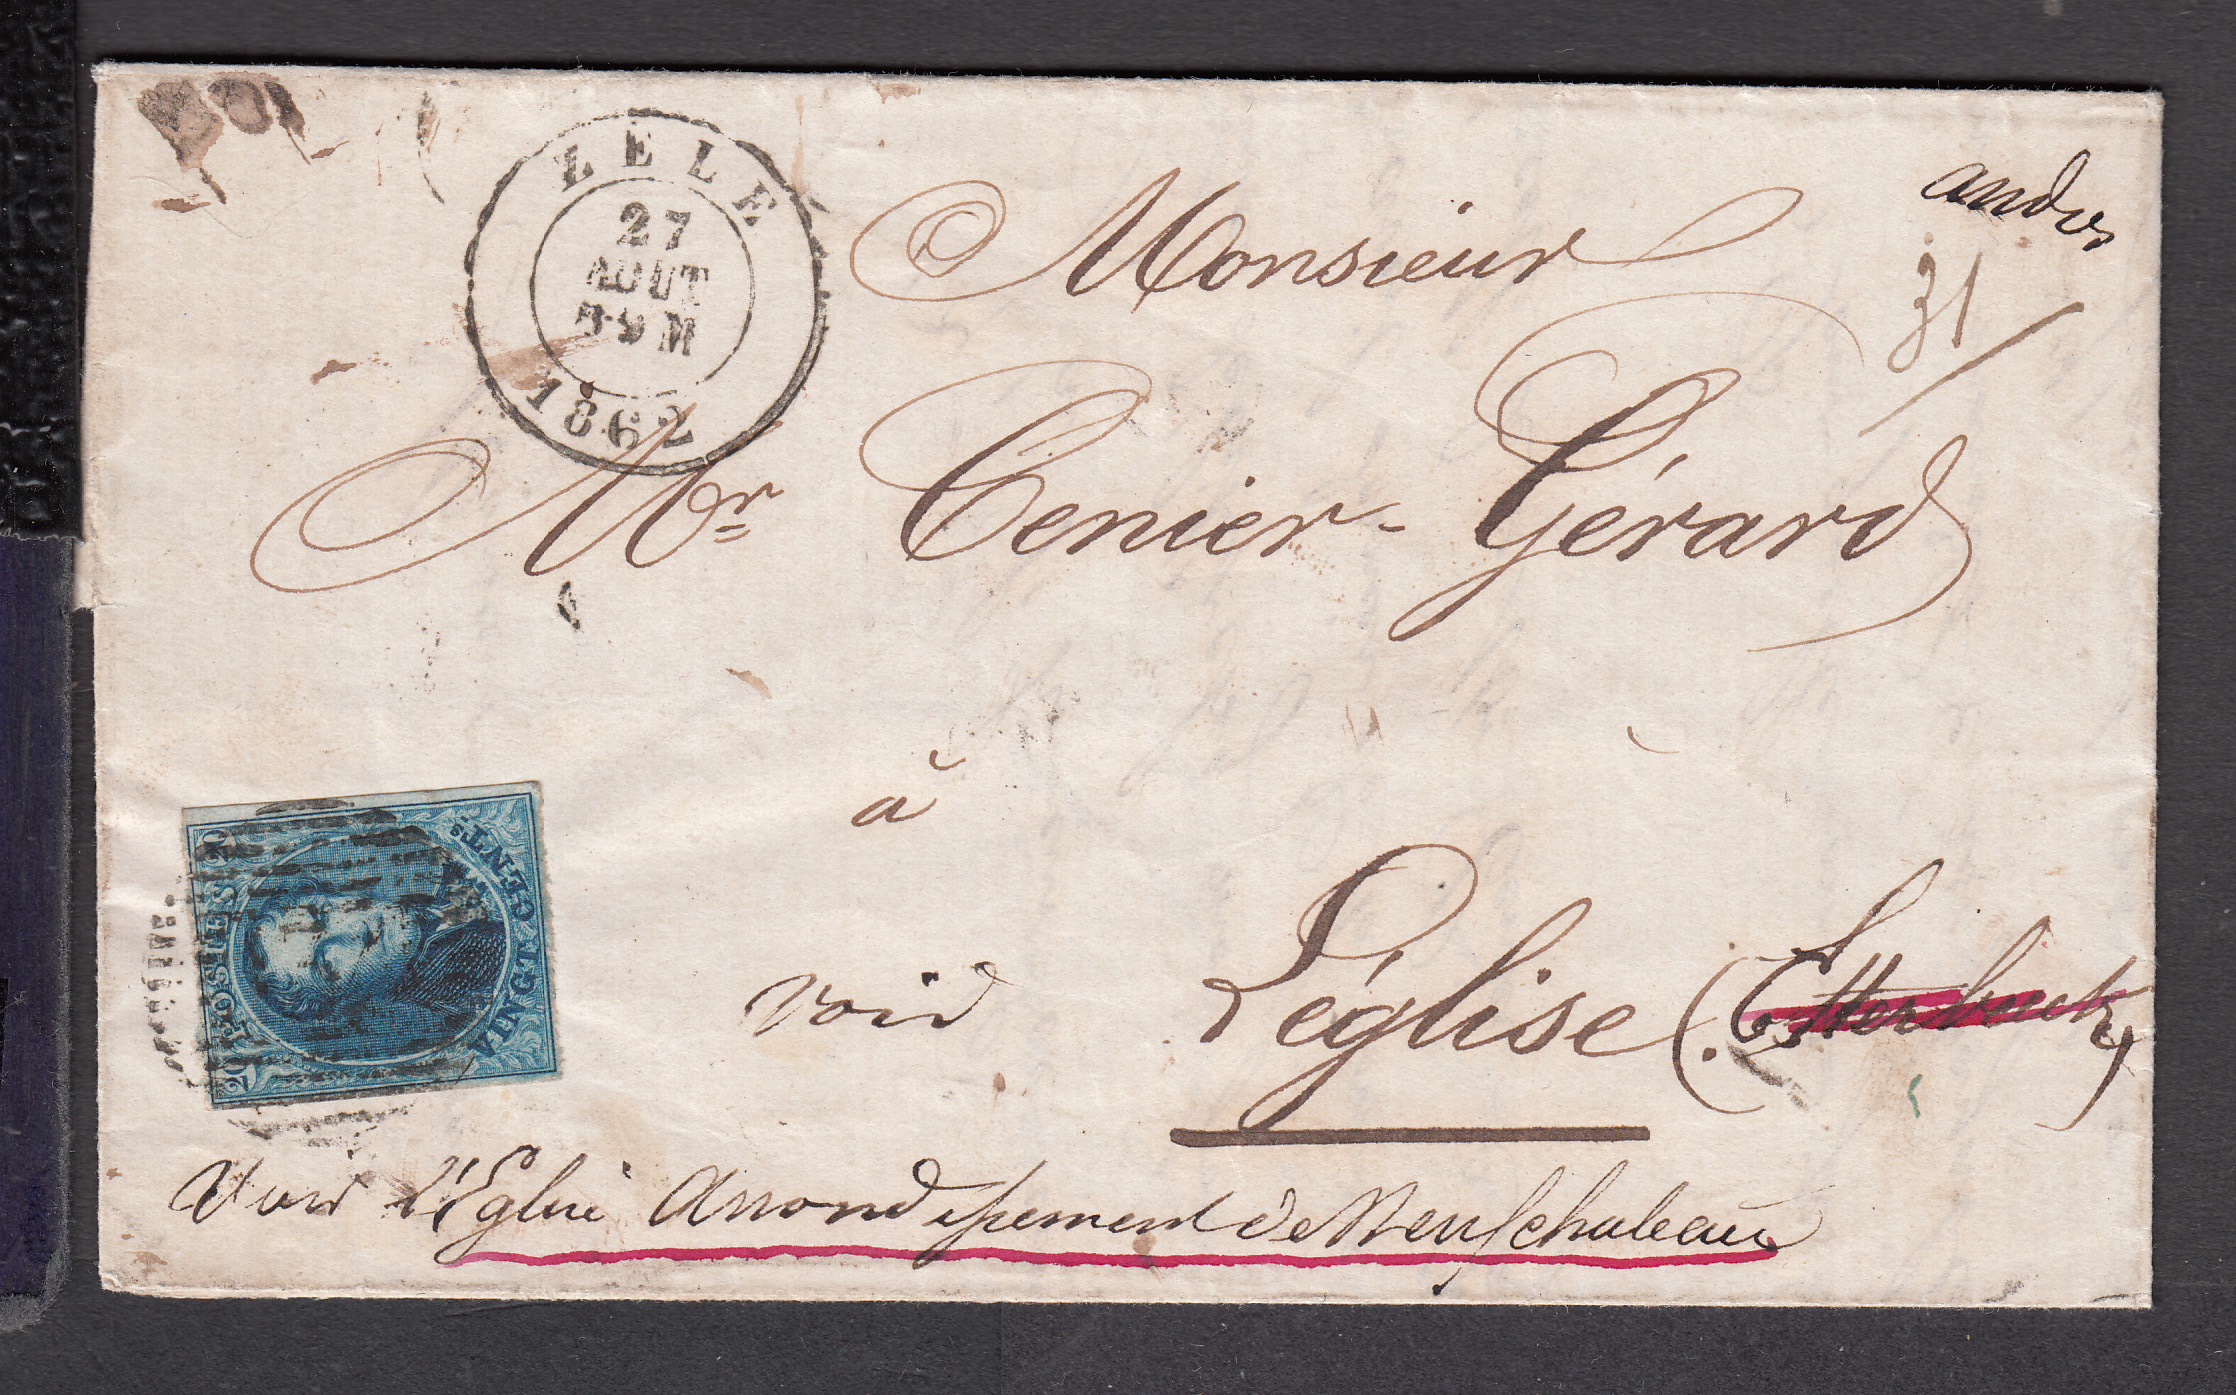 ZELE
27
AOUT
8-9 M
1862
andos
Monsieur
31
Mr Cenier-Gérard
à
void Léglise (Etterbeck)
20 POSTES 20
VINGT CENTS.
Void L'Eglise Arrondissement de Neufchateau